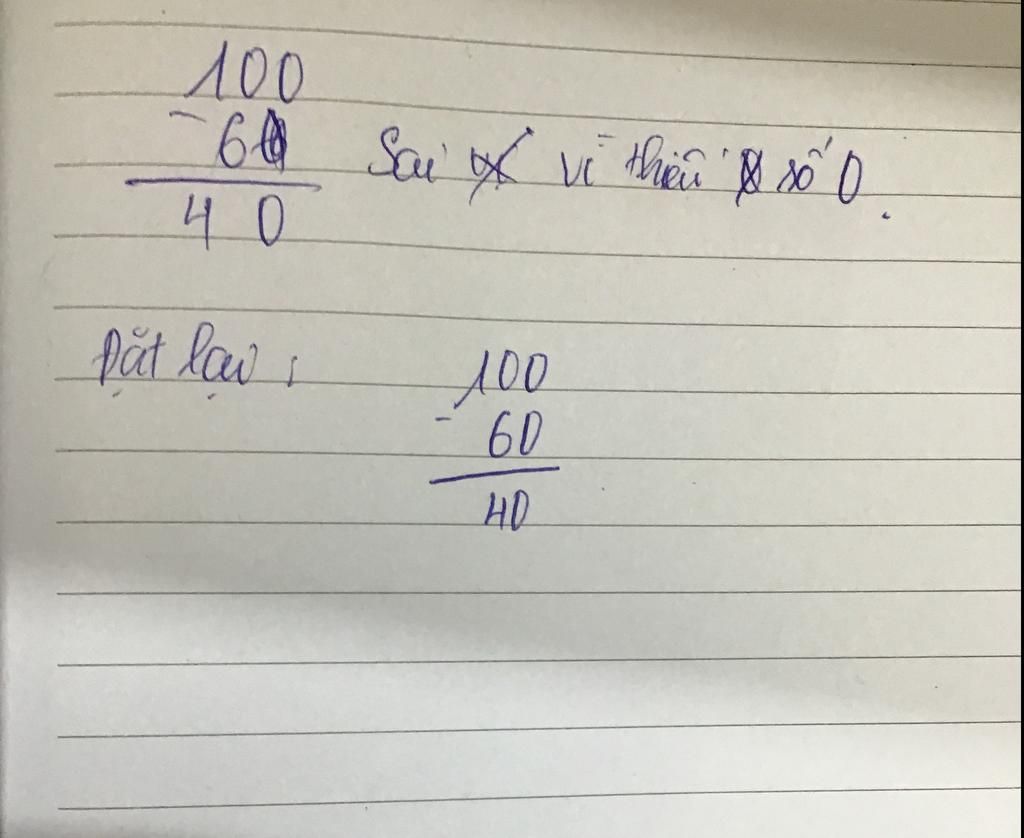 100
- 60 Sai vì thiếu số 0.
4 0
Đặt lại :
100
- 60
40